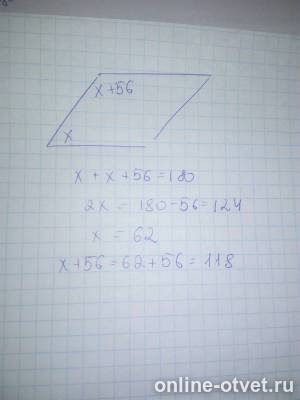 x+56
x
x + x + 56 = 180
2x = 180-56=124
x = 62
x+56=62+56=118
online-otvet.ru